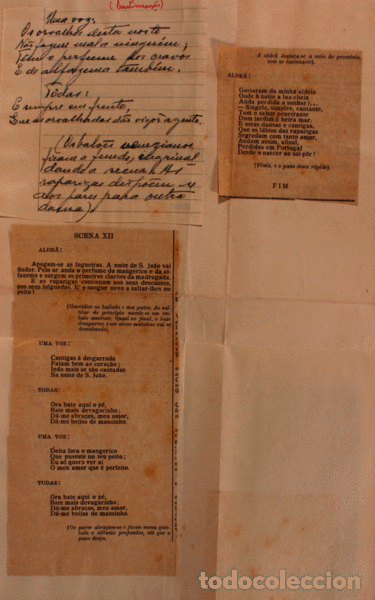 (continuação)
Uma voz:
Os orvalhos desta noite
Não fazem mal a ninguém,
Têm o perfume dos cravos
E de alfazema também.
Todas:
É sempre em frente,
Que as orvalhadas dão viço à gente.
(Os balões venezianos,
ficam a fundo,
dando a scena. As
raparigas
dos pares para outra
A aldeã destaca-se a meio do proscénio,
ALDEÃ:
Gostaram da minha aldeia
Onde à noite a lua-cheia
Anda perdida a sonhar?...
— Singela, simples, cantante,
Tem o sabor penetrante
Dum jardim à beira mar.
E estas danças e cantigas,
Que os lábios das raparigas
Segredam com tanto amor,
Andam assim, afinal,
Perdidas em Portugal
Desde o nascer ao sol-pôr!
(Vénia, e o pano desce rápido)
FIM
SCENA XII
ALDEÃ:
Apagam-se as fogueiras. A noite de S. João vai
findar. Pelo ar anda o perfume do mangerico e da al-
fazema e surgem os primeiros clarões da madrugada.
E as raparigas continuam nos seus descantes,
nos seus folguedos. E' o sangue novo a saltar-lhes no
peito!
UMA VOZ:
Cantigas à desgarrada
Falam bem ao coração;
Inda mais se são cantadas
Na noite de S. João.
TODAS:
Ora bate aqui o pé,
Bate mais devagarinho;
Dá-me abraços, meu amor,
Dá-me beijos de mansinho.
UMA VOZ:
Deita fora o mangerico
Que puseste no teu peito;
Eu só quero ver aí
O meu amor que é perfeito.
TODAS:
Ora bate aqui o pé,
Bate mais devagarinho;
Dá-me abraços, meu amor,
Dá-me beijos de mansinho.
(Os pares abraçam-se e ficam numa quie-
tude e silêncio profundos, até que o
pano desça.
todocoleccion